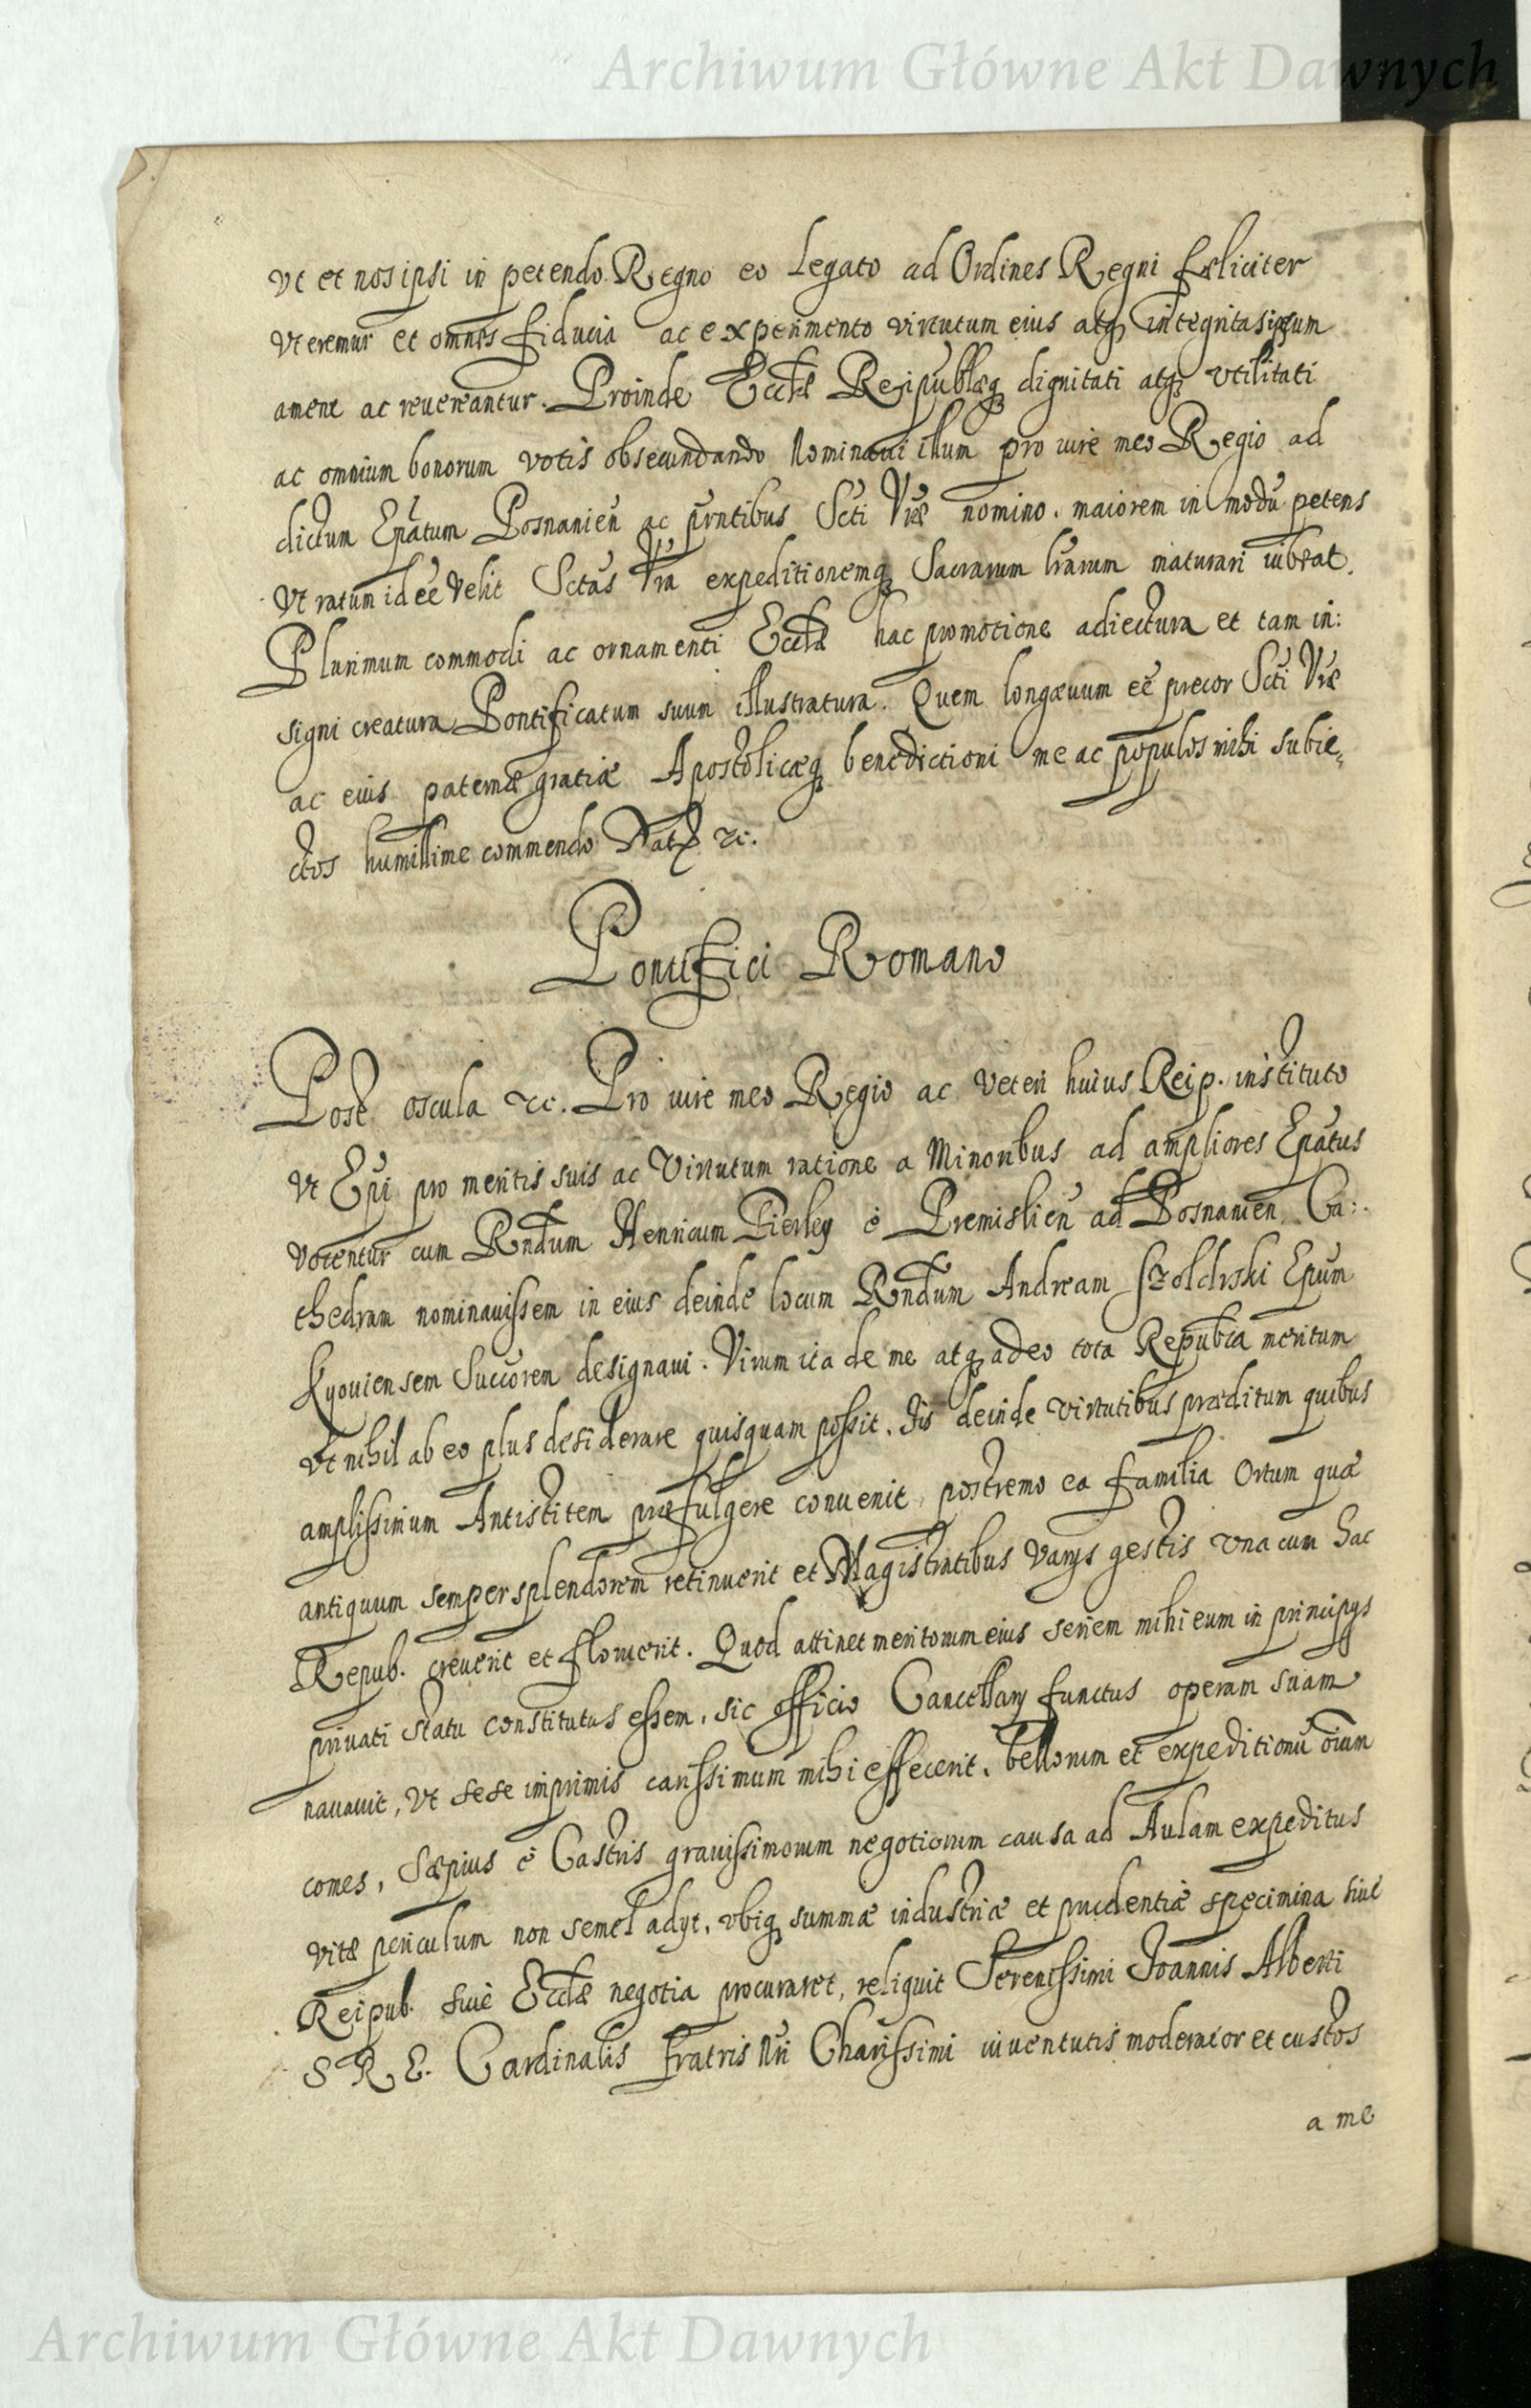 Archiwum Główne Akt Dawnych
Vt et nos ipsi in petendo Regno eo Legato ad Ordines Regni feliciter
Vteremur et omnes fiducia ac experimento virtutum eius atq integritas ipsum
ament ac reuereantur. Proinde Ecclæ Reipublæq dignitati atq vtilitati
ac omnium bonorum votis obsecundando Nominaui illum pro iure meo Regio ad
dictum Epatum Posnanien ac pn̄tibus Scti Vræ nomino, maiorem in modū petens
Vt ratum id eē Velit Sctas Vra expeditionemq Sacrarum lrarum maturari iubeat.
Plurimum commodi ac ornamenti Ecclæ hac promotione adiectura et tam in:
signi creatura Pontificatum suum illustratura. Quem longæuum eē precor Scti Vræ
ac eius paternæ gratiæ Apostolicæq benedictioni me ac populos mihi subie„
ctos humillime commendo Dat ꝛc.
Pontifici Romano
Post oscula ꝛc. Pro iure meo Regio ac Veteri huius Reip. instituto
Vt Epi pro meritis suis ac Virtutum ratione a Minoribus ad ampliores Epatus
vocentur cum Rndum Henricum Fierley è Premislien ad Posnanien Ca:
thedram nominauissem in eius deinde locum Rndum Andream Szoldrski Epum
Kyouiensem Succorem designaui. Virum ita de me atq adeo tota Republca meritum
Vt nihil ab eo plus desiderare quisquam possit. Iis deinde virtutibus præditum quibus
amplissimum Antistitem præfulgere conuenit, postremo ea familia Ortum quæ
antiquum semper splendorem retinuerit et Magistratibus Varijs gestis vna cum hac
Repub. creuerit et floruerit. Quod attinet meritorum eius seriem mihi eum in principijs
priuati statu constitutus essem, sic officio Cancellarij functus operam suam
nauauit, Vt sese imprimis carissimum mihi effecerit, bellorum et expeditionū oīum
comes, Sæpius è Castris grauissimorum negotiorum causa ad Aulam expeditus
vitæ periculum non semel adijt, vbiq summæ industriæ et prudentiæ specimina siue
Reipub. siue Ecclæ negotia procuraret, reliquit Serenissimi Joannis Alberti
S R E. Cardinalis Fratris Nri Charissimi iuuentutis moderator et custos
a me
Archiwum Główne Akt Dawnych